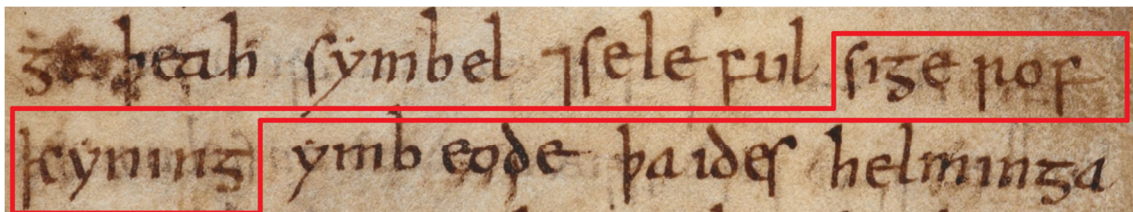 geþeah symbel ⁊sele ful sige rof
kyning ymb eode þa ides helminga